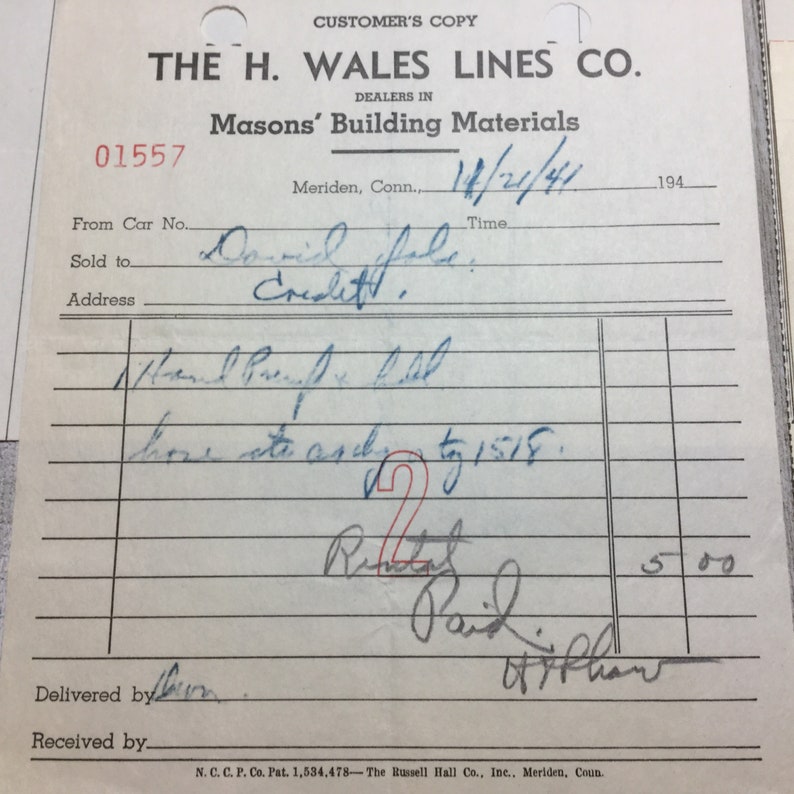 CUSTOMER'S COPY
THE H. WALES LINES CO.
DEALERS IN
Masons' Building Materials
01557
Meriden, Conn., 11/21/41 194
From Car No. Time
Sold to David
Address Credit.
1 Hand Pump &
hose 1518.
2
Rental 5 00
Paid.
Delivered by
Received by
N. C. C. P. Co. Pat. 1,534,478— The Russell Hall Co., Inc., Meriden, Conn.